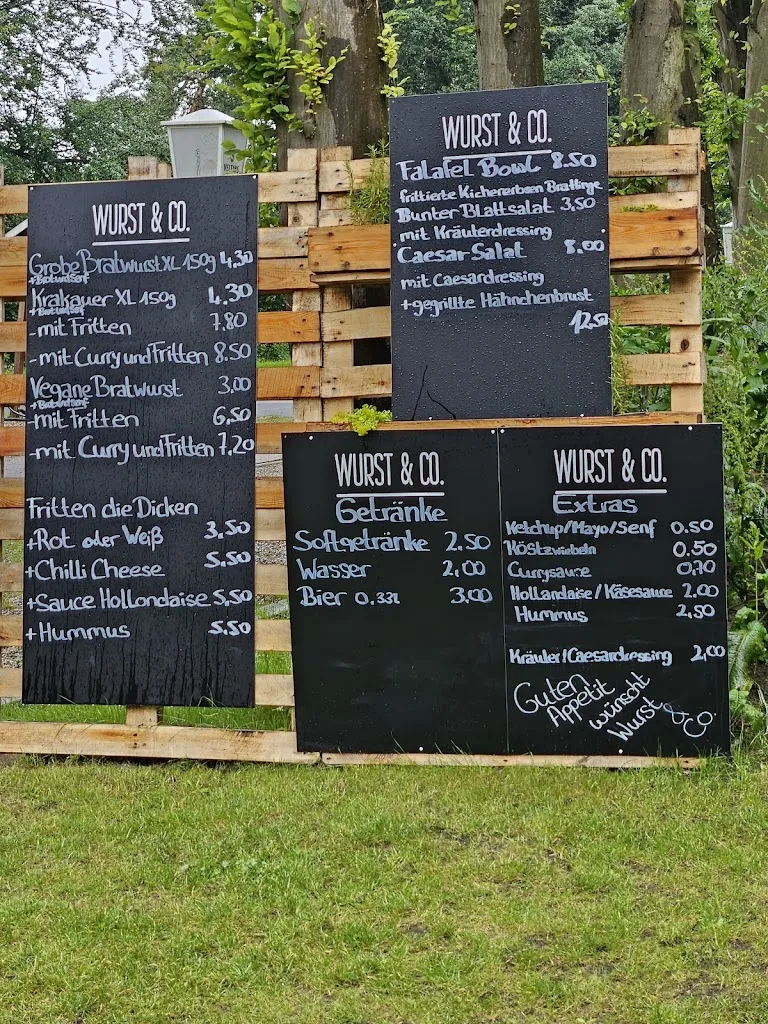 WURST & CO.
Grobe Bratwurst XL 150g 4,30
+Brot und Senf
Krakauer XL 150g 4.30
+Brot und Senf
-mit Fritten 7.80
-mit Curry und Fritten 8.50
Vegane Bratwurst 3,00
+Brot und Senf
-mit Fritten 6,50
-mit Curry und Fritten 7,20
Fritten die Dicken
+Rot oder Weiß 3,50
+Chilli Cheese 5,50
+Sauce Hollondaise 5,50
+Hummus 5.50
WURST & CO.
Falafel Bowl 8.50
frittierte Kichererbsen Bratlinge
Bunter Blattsalat 3,50
mit Kräuterdressing
Caesar-Salat 8,00
mit Caesardressing
+gegrillte Hähnchenbrust
12,50
WURST & CO.
Getränke
Softgetränke 2,50
Wasser 2,00
Bier 0,33l 3,00
WURST & CO.
Extras
Ketchup/Mayo/Senf 0.50
Röstzwiebeln 0.50
Currysauce 0,70
Hollandaise/Käsesauce 2.00
Hummus 2,50
Kräuter/Caesardressing 2,00
Guten
Appetit
wünscht
Wurst & Co.